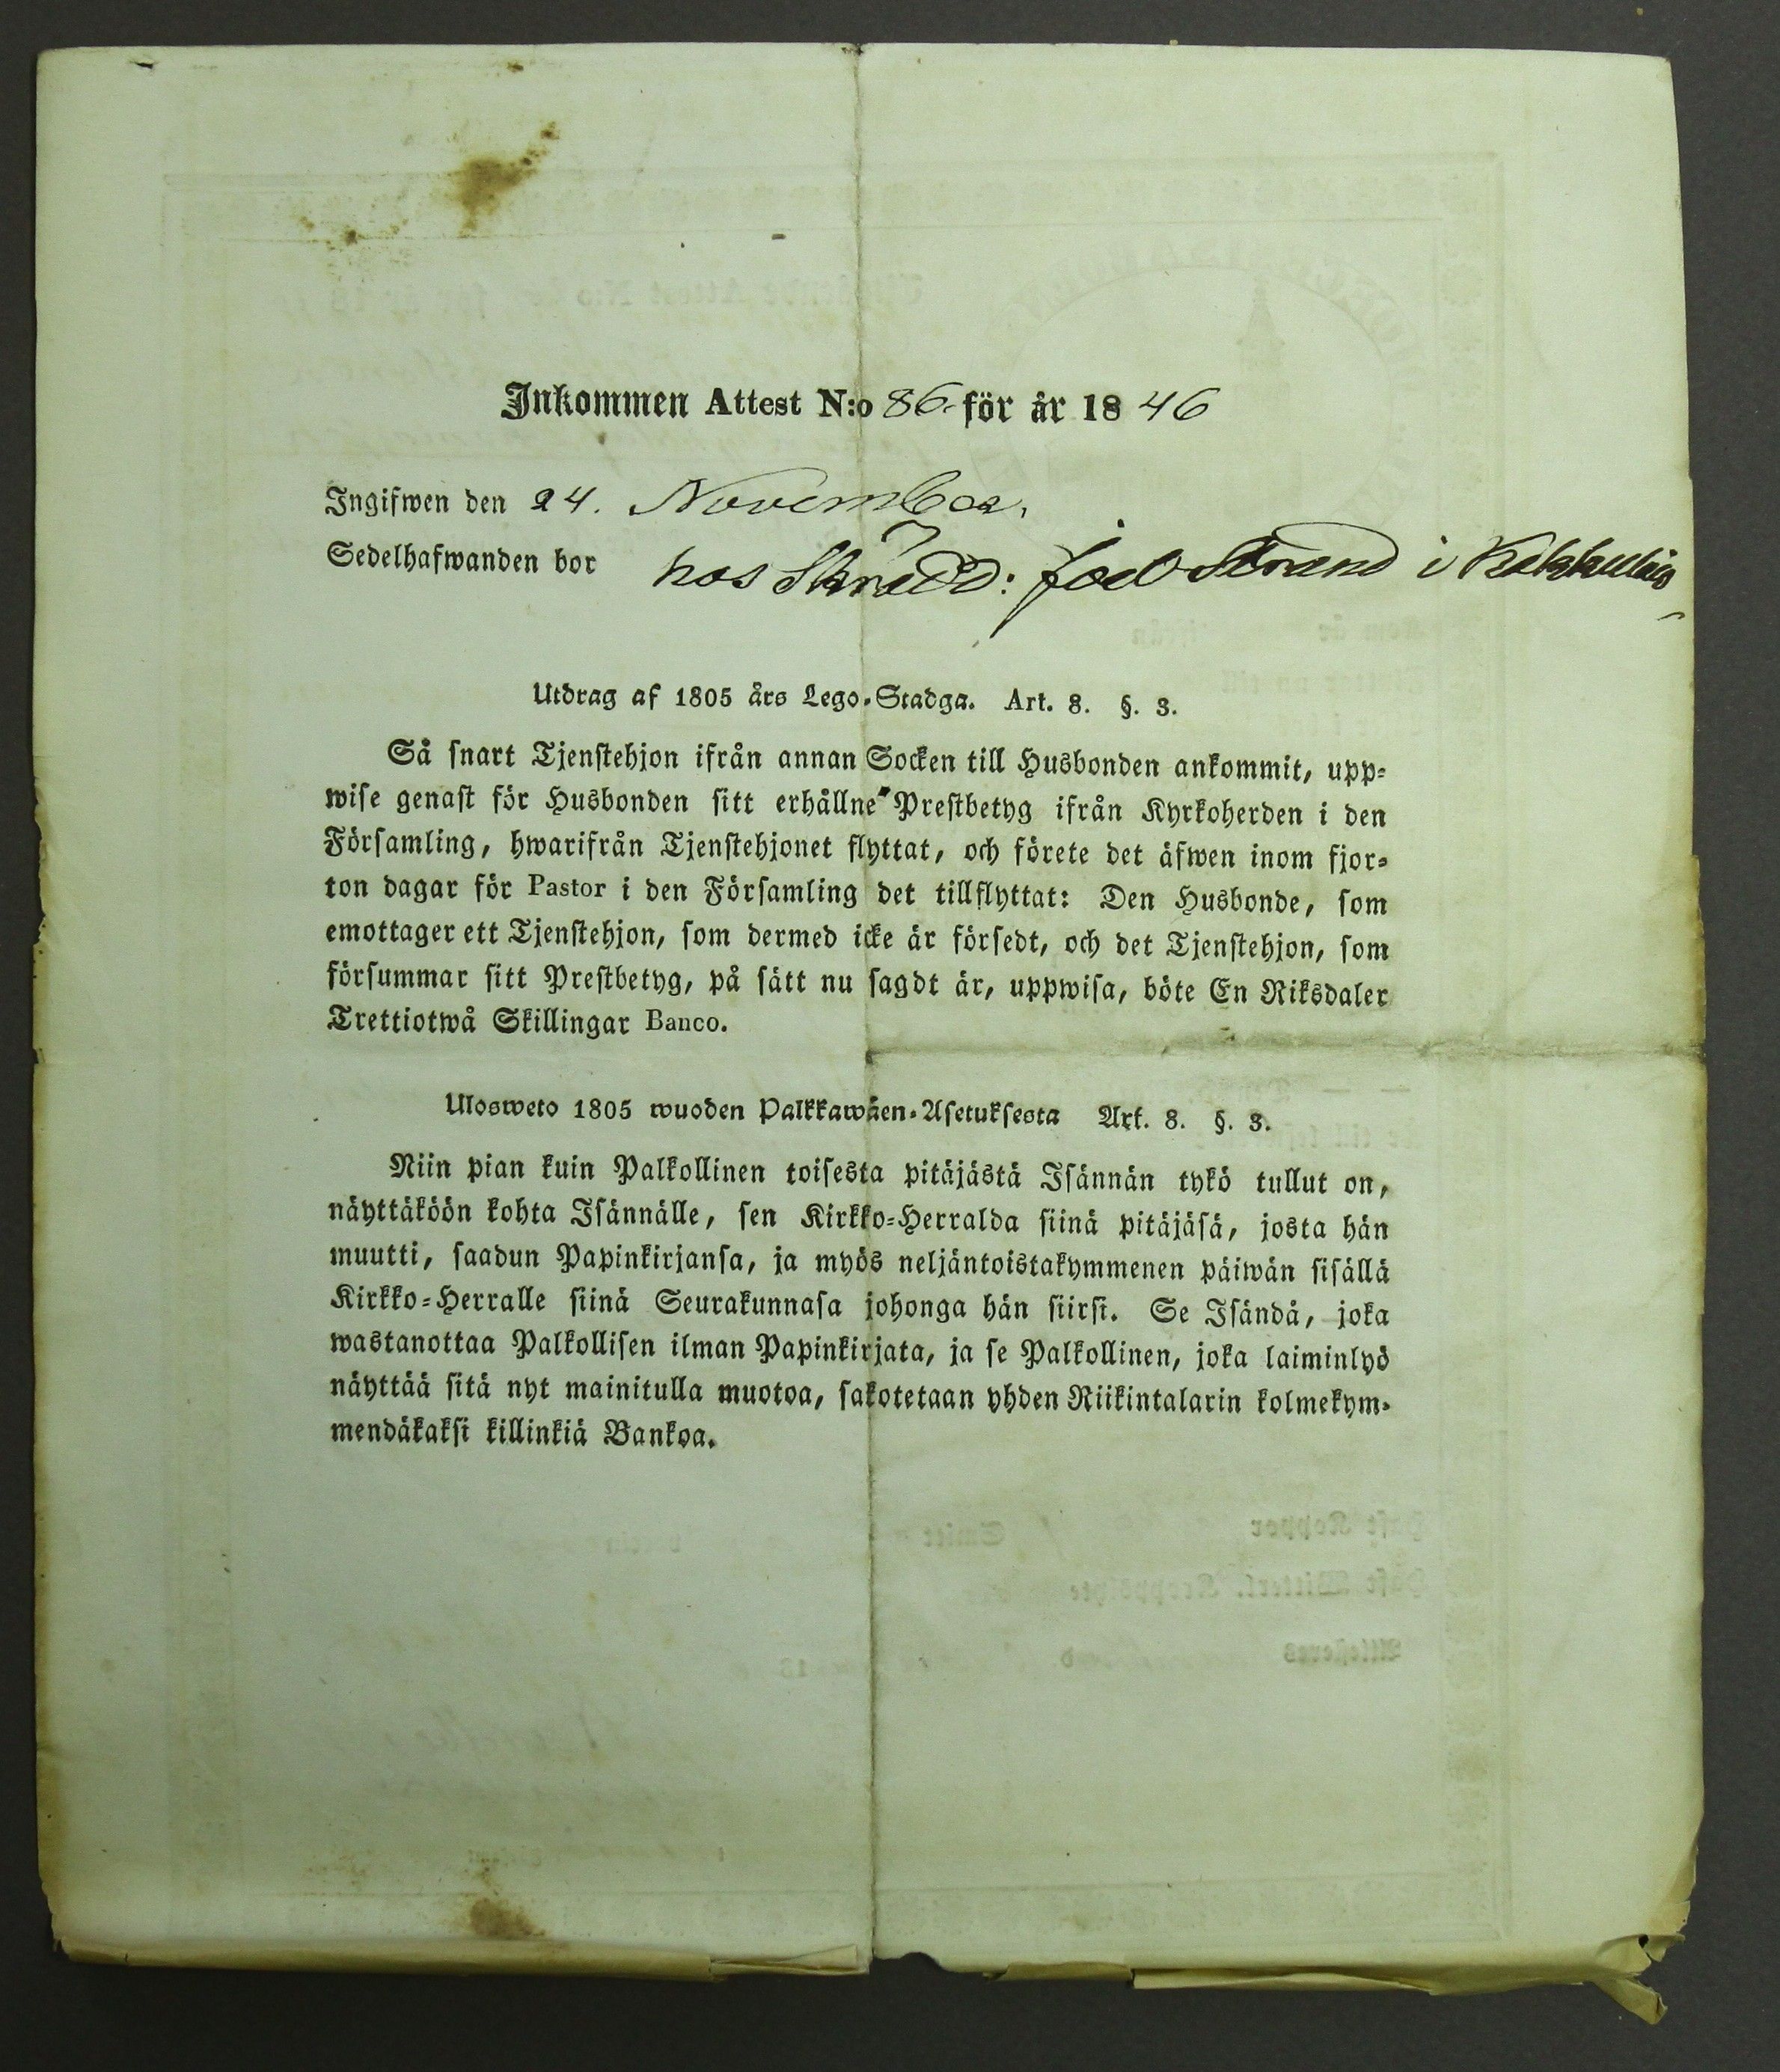 Inkommen Attest N:o 86. för år 1846
Ingifwen den 24. November.
Sedelhafwanden bor hos Skrädd: Joel Strand i
Utdrag af 1805 års Lego-Stadga. Art. 8. §. 3.
Så snart Tjenstehjon ifrån annan Socken till Husbonden ankommit, upp-
wise genast för Husbonden sitt erhållne Prestbetyg ifrån Kyrkoherden i den
Församling, hwarifrån Tjenstehjonet flyttat, och förete det äfwen inom fjor-
ton dagar för Pastor i den Församling det tillflyttat: Den Husbonde, som
emottager ett Tjenstehjon, som dermed icke är försedt, och det Tjenstehjon, som
försummar sitt Prestbetyg, på sätt nu sagdt är, uppwisa, böte En Riksdaler
Trettiotwå Skillingar Banco.
Ulosweto 1805 wuoden Palkkawäen-Asetuksesta Art. 8. §. 3.
Niin pian kuin Palkollinen toisesta pitäjästä Isännän tykö tullut on,
näyttäköön kohta Isännälle, sen Kirkko-Herralda siinä pitäjäsä, josta hän
muutti, saadun Papinkirjansa, ja myös neljäntoistakymmenen päiwän sisällä
Kirkko-Herralle siinä Seurakunnasa johonga hän siirsi. Se Isändä, joka
wastanottaa Palkollisen ilman Papinkirjata, ja se Palkollinen, joka laiminlyö
näyttää sitä nyt mainitulla muotoa, sakotetaan yhden Riikintalarin kolmekym-
mendäkaksi killinkiä Bankoa.